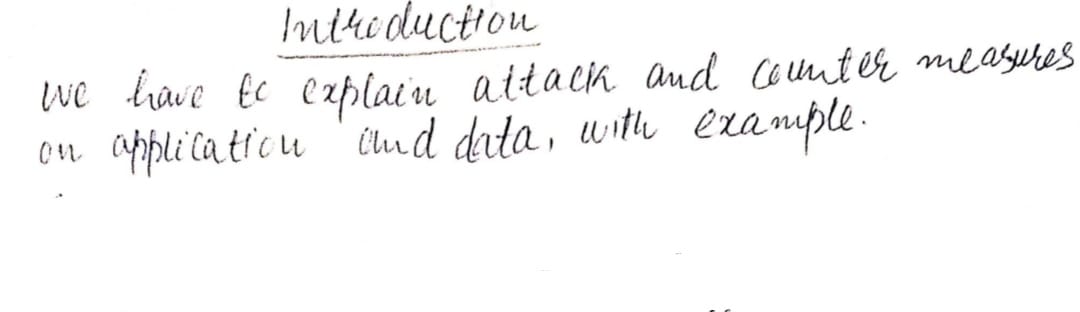 Introduction
we have to explain attack and counter measures
on application and data, with example.